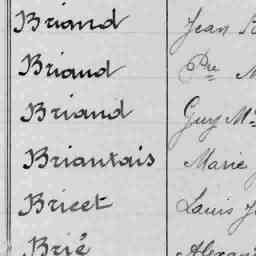 Briand Jean
Briand Pre
Briand Guy M
Briantais Marie
Bricet Louis
Brié Alexan